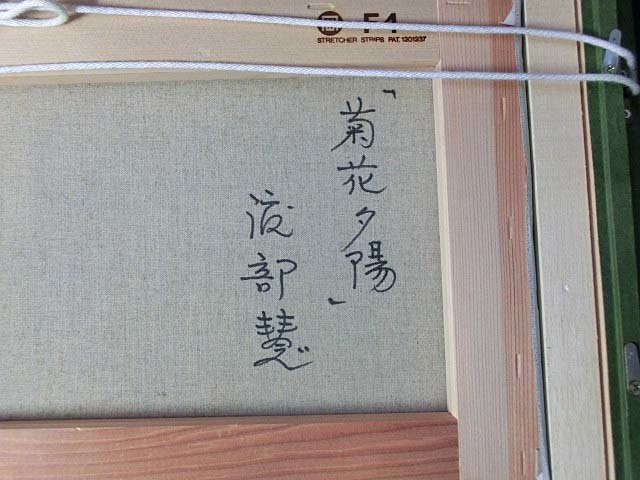 F4
STRETCHER STRIPS PAT.1201237
「菊花夕陽」
渡部慧